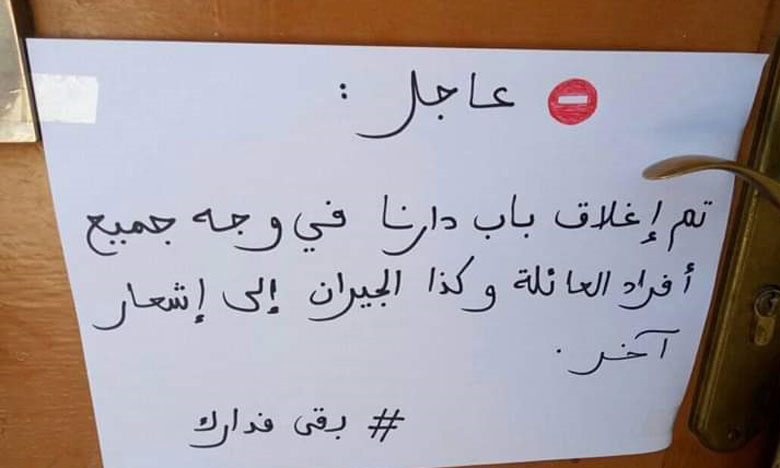 عاجل :
تم إغلاق باب دارنا في وجه جميع
أفراد العائلة وكذا الجيران إلى إشعار
آخر.
# بقى فدارك